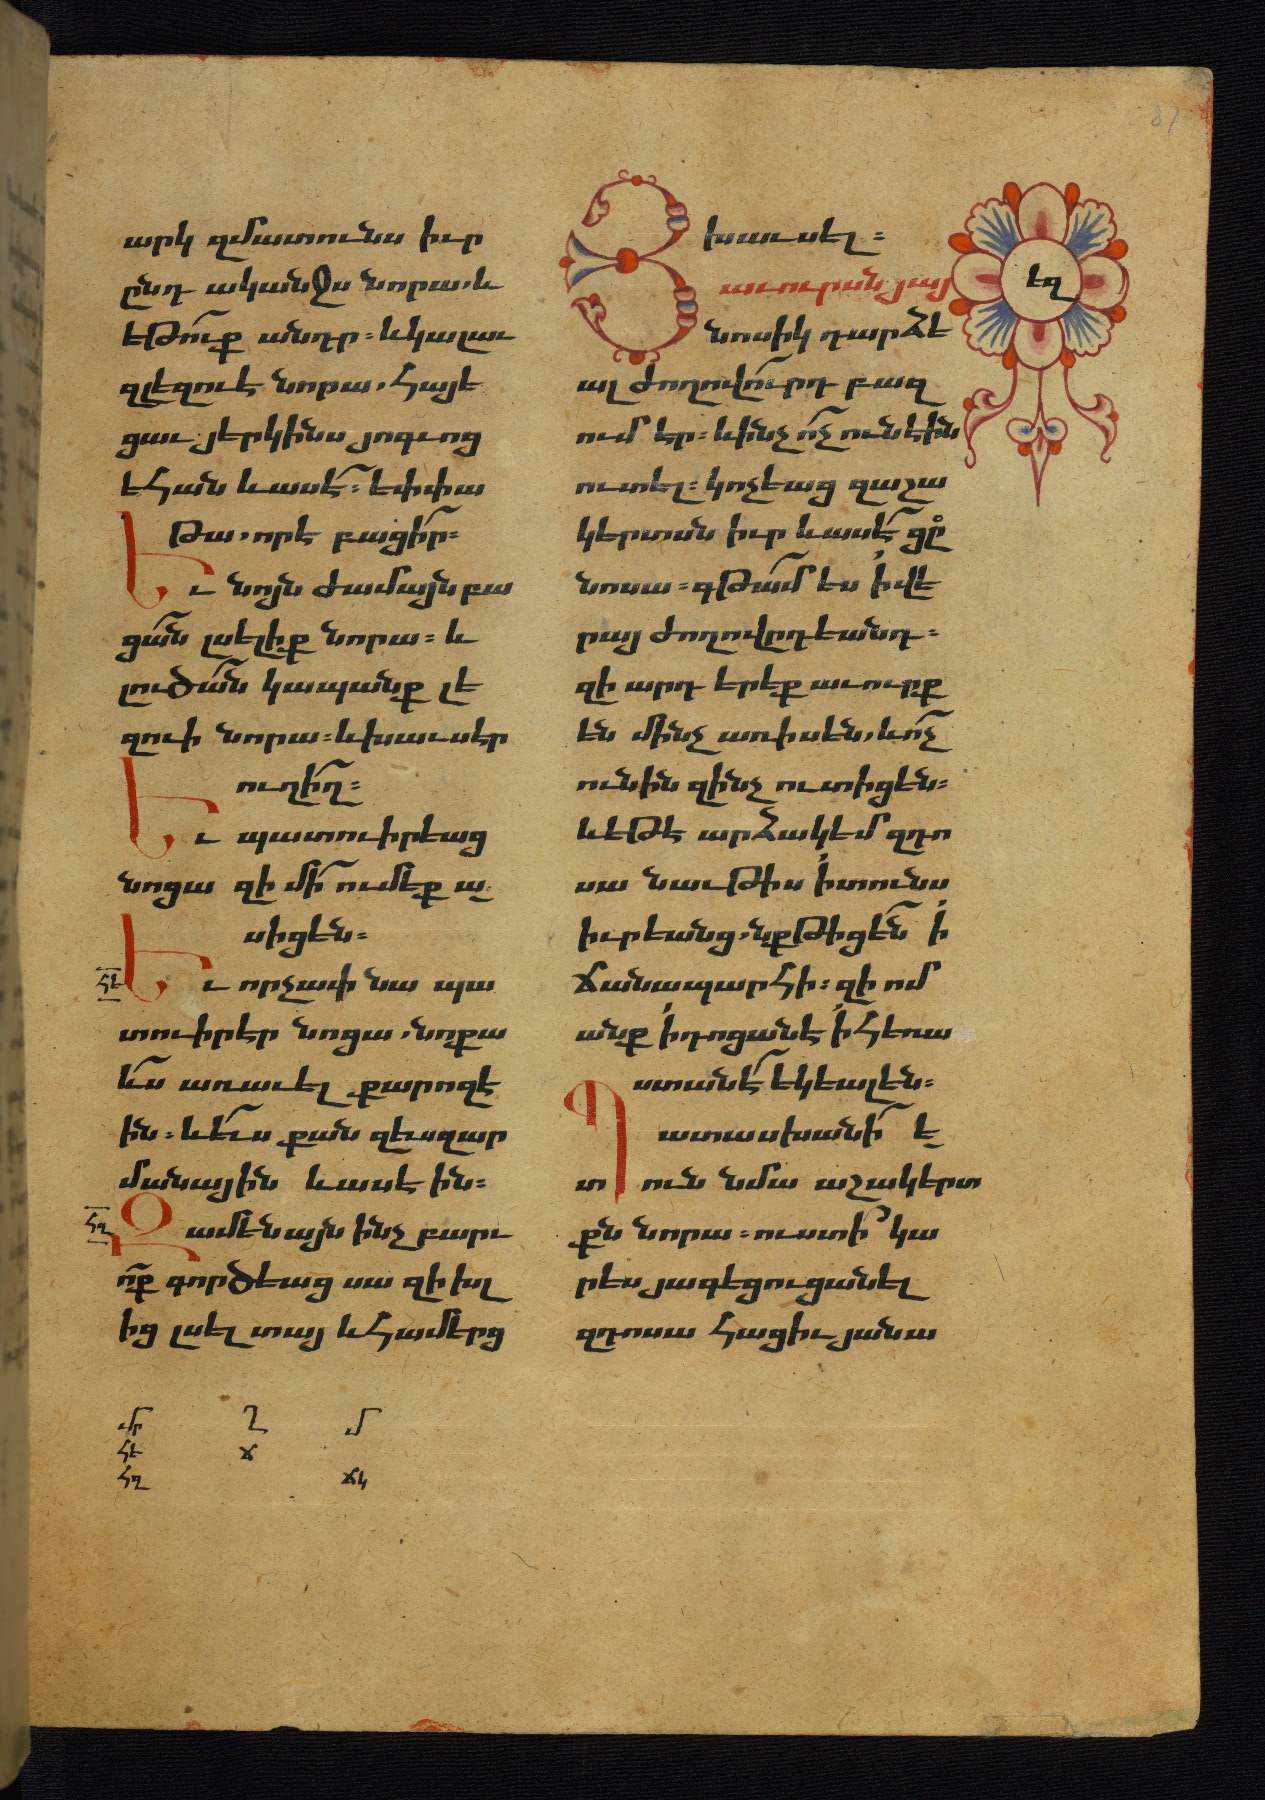 արկ զմատունս իւր
ընդ ականջս նորա, և
եթուք անդր։ և կալաւ
զլեզուէ նորա, հայե
ցաւ յերկինս յոգւոց
եհան և ասէ։ եփփա
թա, որէ բացիր։
Եւ նոյն ժամայն բա
ցան լսելիք նորա։ և
լուծան կապանք լե
զուի նորա։ և խաւսէր
ուղիղ։
Եւ պատուիրեաց
նոցա զի մի ումեք ա
սիցեն։
հե
Եւ որչափ նա պա
տուիրէր նոցա, նոքա
ևս առաւել քարոզէ
ին։ և ևս քան զևս զար
մանային և ասէին։
հզ
Զամենայն ինչ բարւ
ոք գործեաց սա զի խլ
ից լսել տայ և համերց
մր ղ մ
հե ճ
հզ ճկ
87
խաւսել։
Յաւուրսն յայ
եզ
նոսիկ դարձե
ալ ժողովուրդ բազ
ում էր։ և ինչ ոչ ունէին
ուտել։ կոչեաց զաշա
կերտսն իւր և ասէ ցը
նոսա։ գթամ ես ի վե
րայ ժողովրդեանդ։
զի արդ երեք աւուրք
են մինչ առ իս են, և ոչ
ունին զինչ ուտիցեն։
և եթէ արձակեմ զդո
սա նաւթիս ի տունս
իւրեանց, նքթիցեն ի
ճանապարհի։ զի ոմ
անք ի դոցանէ ի հեռա
ստանէ եկեալ են։
Պատասխանի ե
տուն նմա աշակերտ
քն նորա։ ուստի կա
րես յագեցուցանել
զդոսա հացիւ յանա